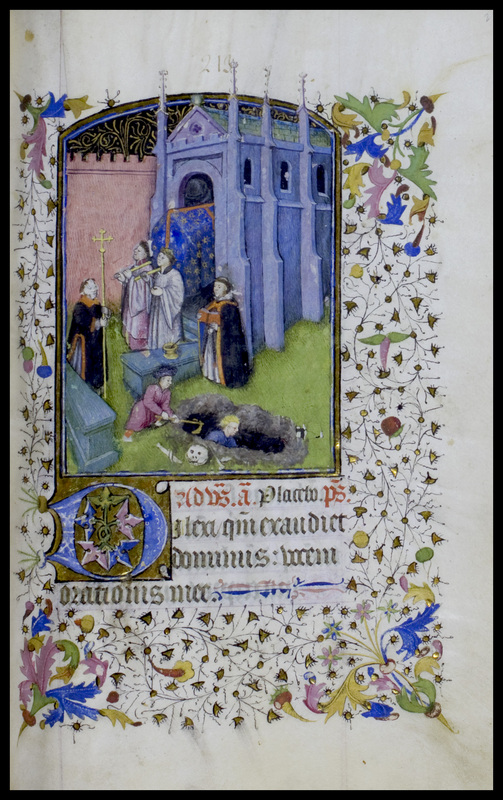 Ad vs̄. ā. Placebo. ps̄.
Dilexi qm̄ exaudiet
dominus: vocem
orationis mee